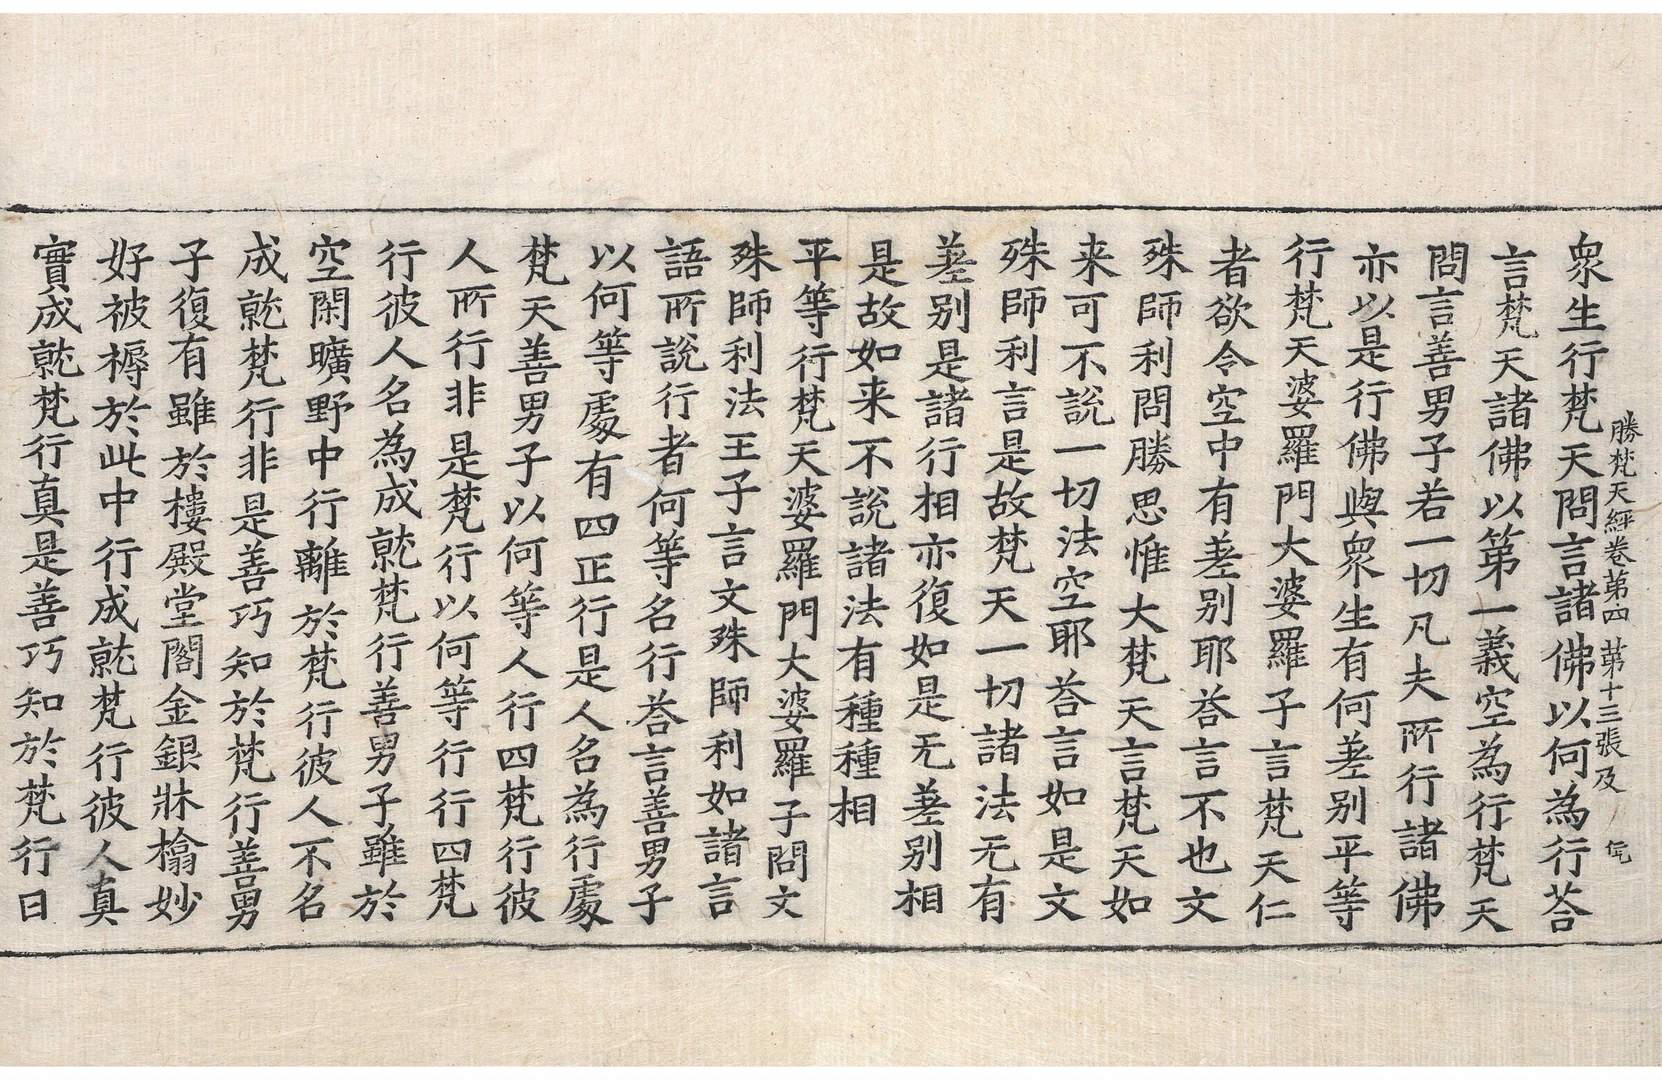 勝梵天經卷第四　第十三張及
眾生行梵天問言諸佛以何為行荅
言梵天諸佛以第一義空為行梵天
問言善男子若一切凡夫所行諸佛
亦以是行佛與眾生有何差別平等
行梵天婆羅門大婆羅子言梵天仁
者欲令空中有差別耶荅言不也文
殊師利問勝思惟大梵天言梵天如
来可不說一切法空耶荅言如是文
殊師利言是故梵天一切諸法无有
差別是諸行相亦復如是无差別相
是故如来不說諸法有種種相
平等行梵天婆羅門大婆羅子問文
殊師利法王子言文殊師利如諸言
語所說行者何等名行荅言善男子
以何等處有四正行是人名為行處
梵天善男子以何等人行四梵行彼
人所行非是梵行以何等行行四梵
行彼人名為成就梵行善男子雖於
空閑曠野中行離於梵行彼人不名
成就梵行非是善巧知於梵行善男
子復有雖於樓殿堂閣金銀牀榻妙
好被褥於此中行成就梵行彼人真
實成就梵行真是善巧知於梵行日